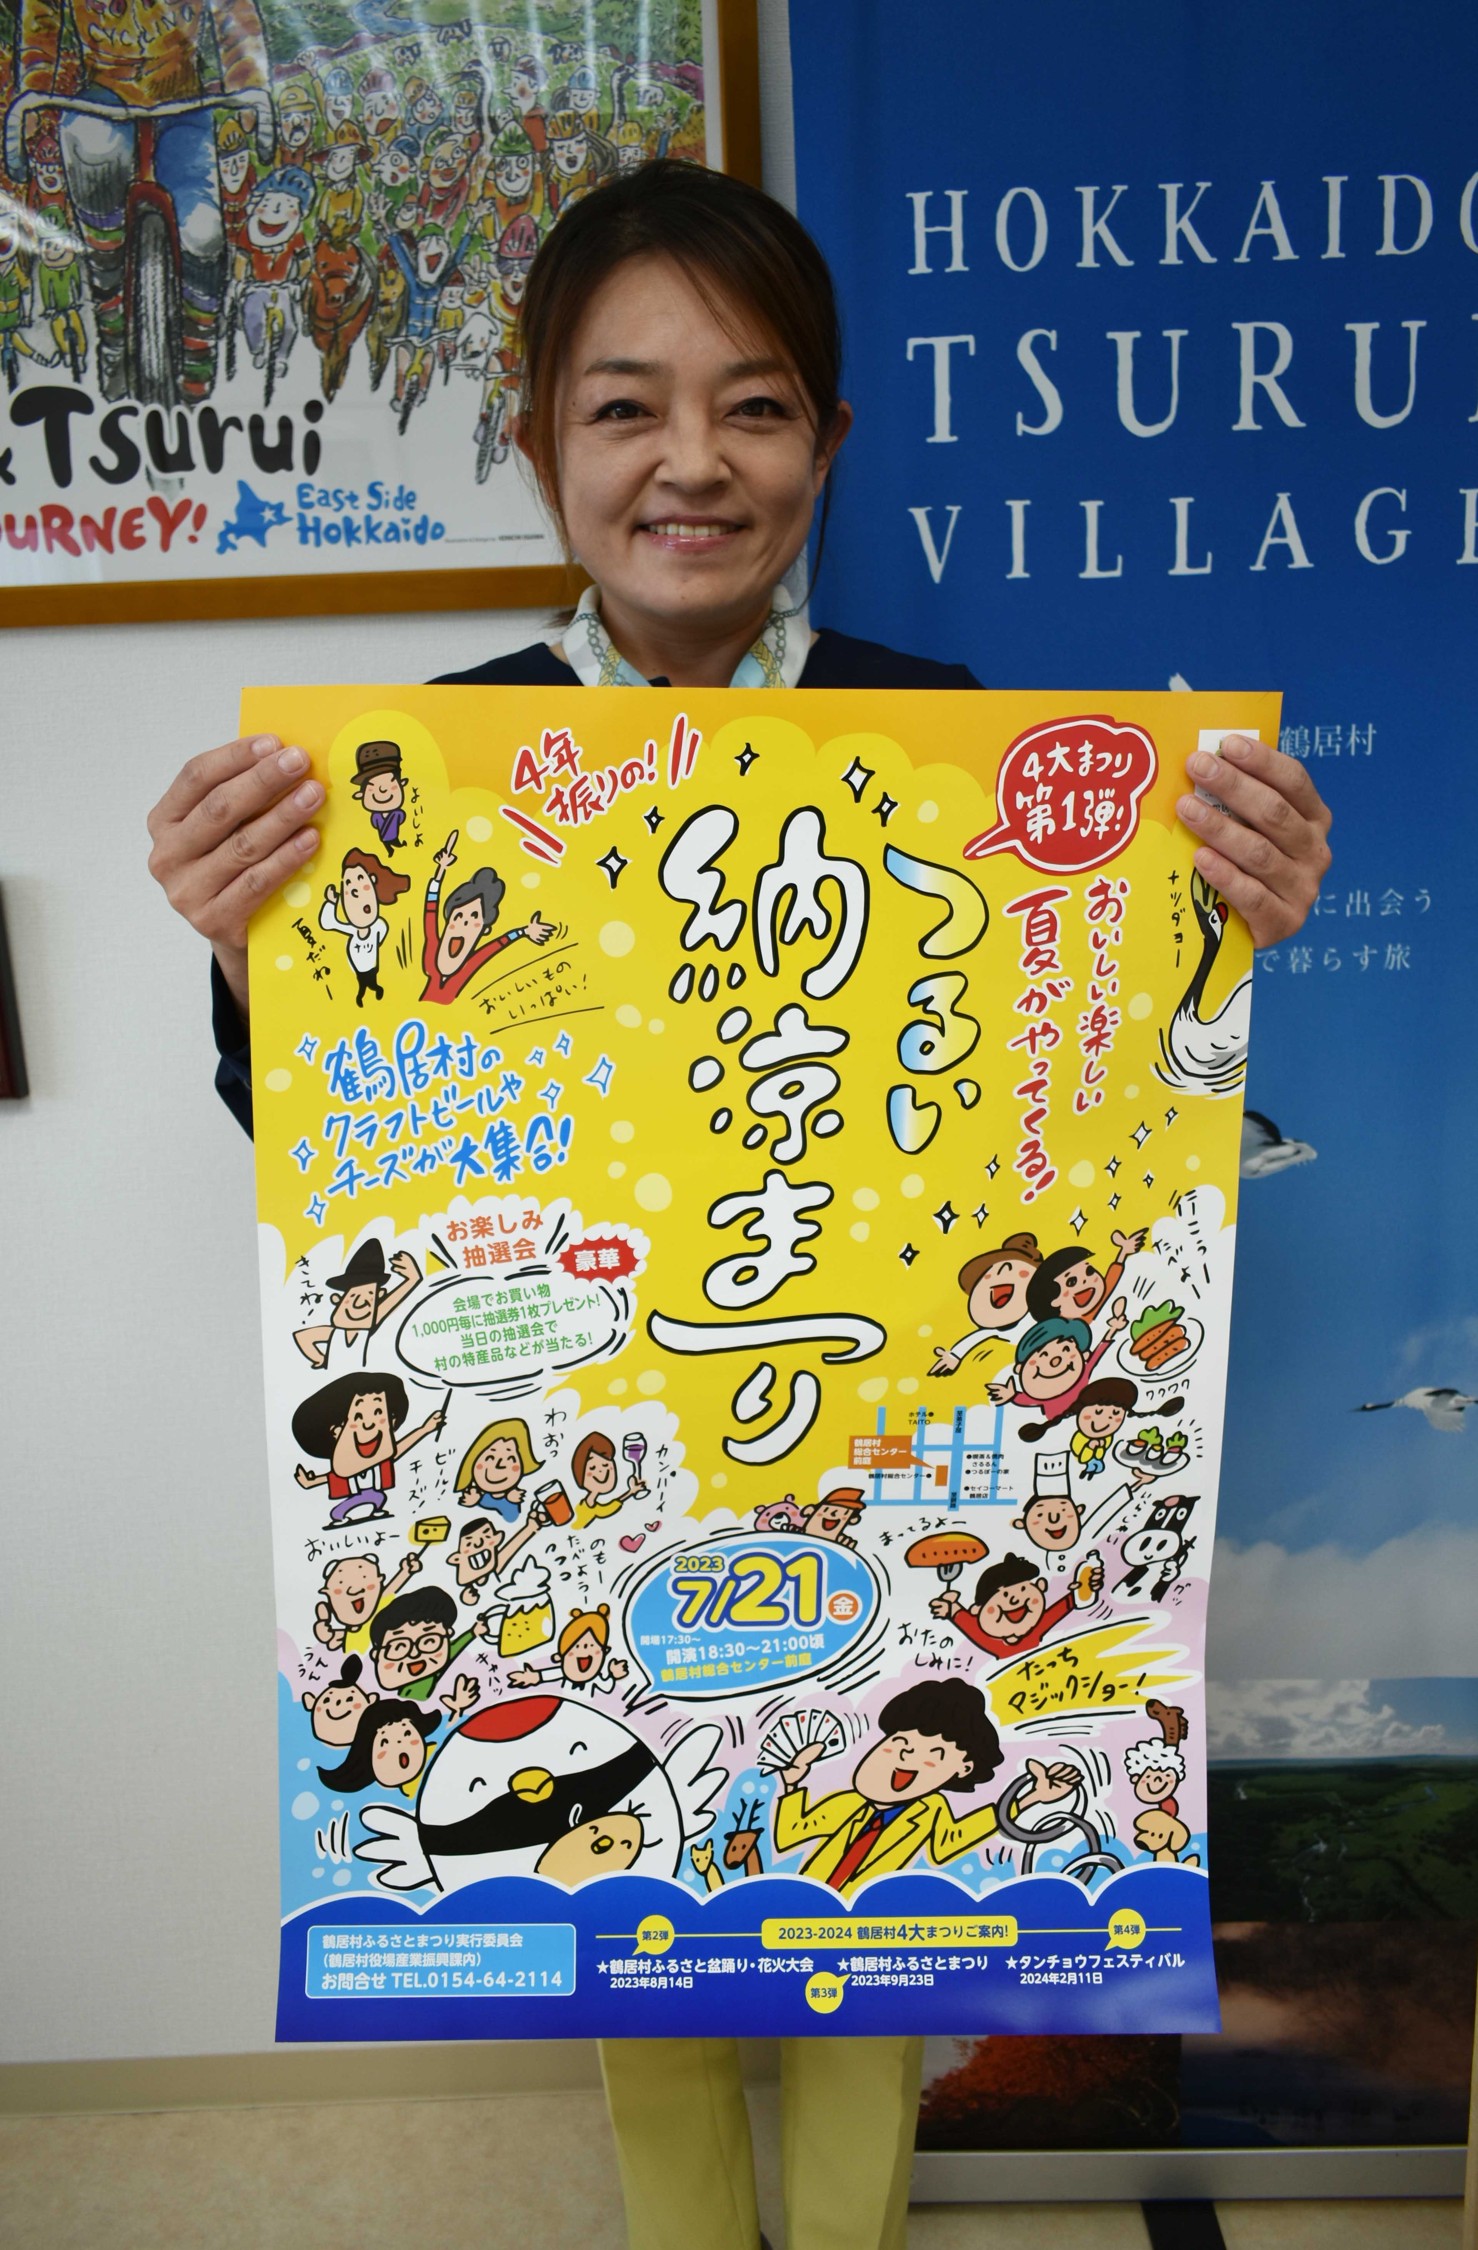 CYCLING
Tsurui
JOURNEY!
East Side
Hokkaido
HOKKAIDO
TSURUI
VILLAGE
鶴居村
に出会う
で暮らす旅
4年
振りの!
4大まつり
第1弾!
つるい
納涼まつり
おいしい楽しい
夏がやってくる!
ナツダョー
よいしょ
夏だねー
ナツ
おいしいもの
いっぱい!
鶴居村の
クラフトビールや
チーズが大集合!
お楽しみ
抽選会
豪華
会場でお買い物
1,000円毎に抽選券1枚プレゼント!
当日の抽選会で
村の特産品などが当たる!
きてね!
行こうー
たべよー
ワクワク
わおっ
カンパーイ
ビール!
チーズ!
おいしいよー
のもー
たべようー
ウンウン
キャハッ
ホテル
TAITO
鶴居村
総合センター
前庭
鶴居村総合センター
つるぼーの家
セイコーマート
鶴居店
まってるよー
おたの
しみに!
2023
7/21
金
開場17:30~
開演18:30~21:00頃
鶴居村総合センター前庭
たっち
マジックショー!
鶴居村ふるさとまつり実行委員会
(鶴居村役場産業振興課内)
お問合せ TEL.0154-64-2114
2023-2024 鶴居村4大まつりご案内!
第2弾
★鶴居村ふるさと盆踊り・花火大会
2023年8月14日
第3弾
★鶴居村ふるさとまつり
2023年9月23日
第4弾
★タンチョウフェスティバル
2024年2月11日